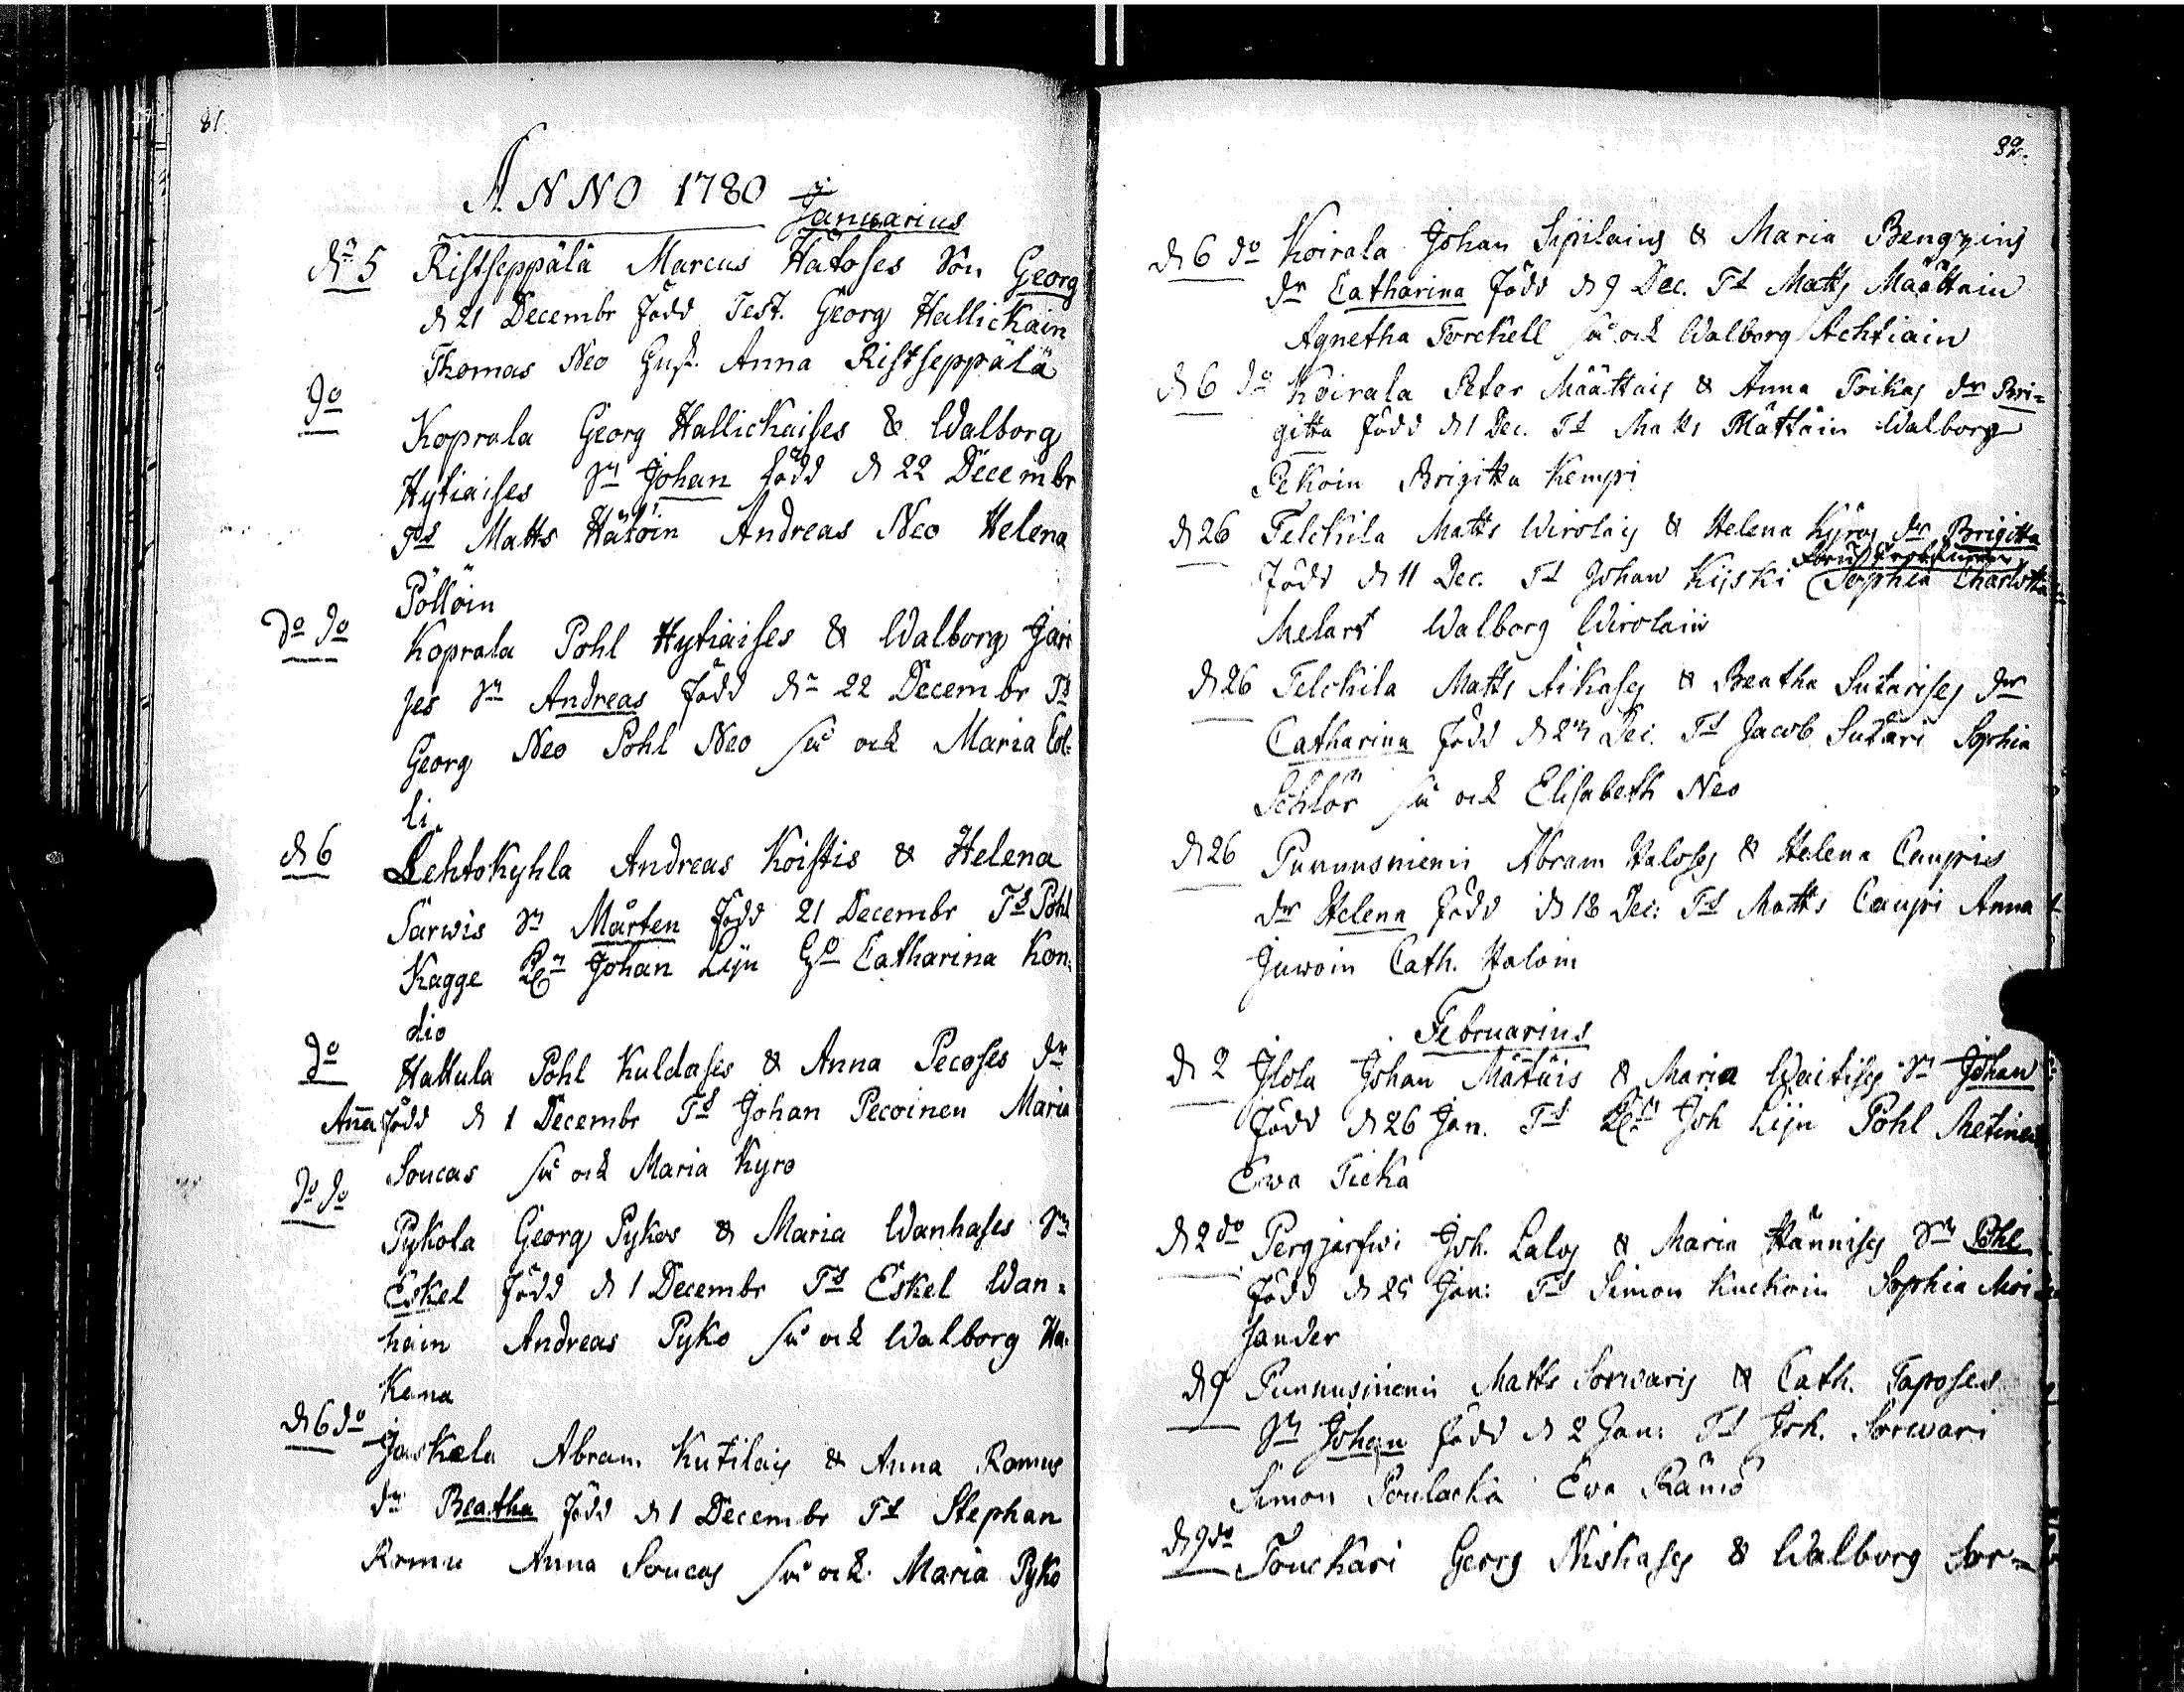 81.
ANNO 1780
Januarius
dn 5 Ristseppälä Marcus Hätöses Son Georg
d 21 Decembr född Test. Georg Hallickain
Thomas Neo Gust. Anna Ristseppälä
do
Koprala Georg Hallickaises & Walborg
Hytiaises Sn Johan född d 22 Decembr
Ts Matts Hätöin Andreas Neo Helena
Pöllöin
do do Koprala Pohl Hytiaises & Walborg Järi
ses Sn Andreas född dn 22 Decembr Ts
Georg Neo Pohl Neo så ock Maria Col:
li.
d 6 Lehtokyhla Andreas Koistis & Helena
Särwis Sn Mårten född 21 Decembr Ts Pohl
Kagge Johan Lijn Catharina Kon:
dio
do Hattula Pohl Kuldases & Anna Pecoses dr
Anna född d 1 Decembr Ts Johan Pecoinen Maria
Soucas så ock Maria Kyrö
do do
Pykola Georg Pykos & Maria Wanhases Sn
Eskel född d 1 Decembr Ts Eskel Wan:
hain Andreas Pyko så ock Walborg Ha:
Kana
d 6 do
Jaskela Abram Kutilais & Anna Romus
dr Beatha född d 1 Decembr Ts Stephan
Romu Anna Soucas så ock Maria Pyko
82.
d 6 do Koirala Johan Sipilains & Maria Bengzins
dr Catharina född d 9 Dec. Ts Matts Määttain
Agnetha Torckell så ock Walborg Achtiain
d 6 do Koirala Peter Määttais & Anna Toikas dr Bri=
gitta född d 1 Dec. Ts Matts Mättäin Walborg
Pekoin Brigitta Kempi
d 26 Telckila Matts Wirolais & Helena Kyrös dr Brigitta
född d 11 Dec. Ts Johan Kijski Sophia Charlotta
Melart Walborg Wirolain
d 26 Telckila Matts Äikases & Beatha Sutarises dr
Catharina född d 27 Dec. Ts Jacob Sutari Sophia
Schlör så ock Elisabeth Neo
d 26 Punnusniemi Abram Haloses & Helena Caupies
dr Helena född d 18 Dec: Ts Matts Caupi Anna
Juwoin Cath. Haloin
Februarius
d 2 Jlola Johan Mätäis & Maria Waitises Sn Johan
född d 26 Jan. Ts Joh Lijn Pohl Metinen
Ewa Ticka
d 2 do Pergjerfwi Joh. Lalos & Maria Hännises Sn Pohl
född d 25 Jan: Ts Simon Kuckoin Sophia Moi
sander
d 9 Punnusniemi Matts Sorwaris & Cath. Taposes
Sn Johan född d 2 Jan: Ts Joh. Sorwari
Simon Poulacka Ewa Rämö
d 9 do Touckari Georg Niskases & Walborg Sor=